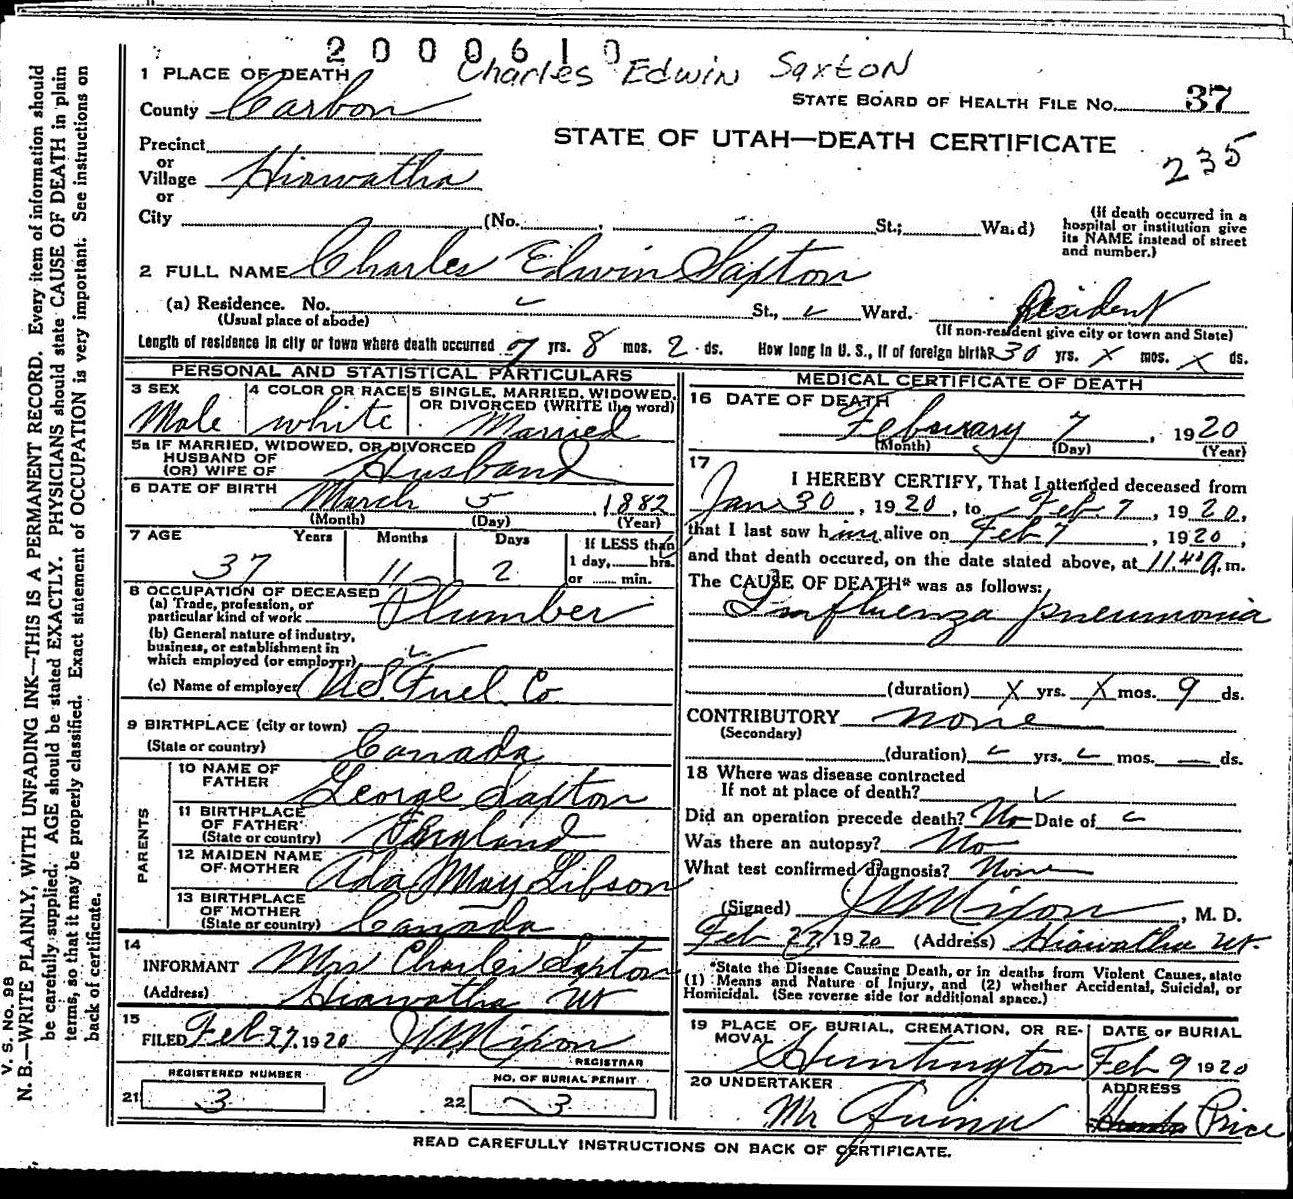 2000610
Charles Edwin Saxton
1 PLACE OF DEATH
STATE BOARD OF HEALTH FILE No. 37
County Carbon
STATE OF UTAH—DEATH CERTIFICATE
235
Precinct
or
Village Hiawatha
or
City (No. , St.; Ward)
(If death occurred in a
hospital or institution give
its NAME instead of street
and number.)
2 FULL NAME Charles Edwin Saxton
(a) Residence. No. St., Ward. Resident
(Usual place of abode) (If non-resident give city or town and State)
Length of residence in city or town where death occurred 7 yrs. 8 mos. 2 ds. How long in U. S., if of foreign birth? 30 yrs. x mos. x ds.
PERSONAL AND STATISTICAL PARTICULARS
3 SEX Male
4 COLOR OR RACE white
5 SINGLE, MARRIED, WIDOWED,
OR DIVORCED (WRITE the word)
Married
5a IF MARRIED, WIDOWED, OR DIVORCED
HUSBAND OF
(OR) WIFE OF Husband
6 DATE OF BIRTH March 5, 1882
(Month) (Day) (Year)
7 AGE Years Months Days
37 11 2
If LESS than
1 day, hrs.
or min.
8 OCCUPATION OF DECEASED
(a) Trade, profession, or
particular kind of work Plumber
(b) General nature of industry,
business, or establishment in
which employed (or employer)
(c) Name of employer U.S. Fuel Co.
9 BIRTHPLACE (city or town)
(State or country) Canada
PARENTS
10 NAME OF
FATHER George Saxton
11 BIRTHPLACE
OF FATHER
(State or country) England
12 MAIDEN NAME
OF MOTHER Ada May Gibson
13 BIRTHPLACE
OF MOTHER
(State or country) Canada
14
INFORMANT Mrs Charles Saxton
(Address) Hiawatha Ut
15
FILED Feb 27, 1920 J W Nixon
REGISTRAR
REGISTERED NUMBER
21 3
NO. OF BURIAL PERMIT
22 3
MEDICAL CERTIFICATE OF DEATH
16 DATE OF DEATH
February 7, 1920
(Month) (Day) (Year)
17
I HEREBY CERTIFY, That I attended deceased from
Jan 30, 1920, to Feb 7, 1920,
that I last saw him alive on Feb 7, 1920,
and that death occured, on the date stated above, at 11.40 a.m.
The CAUSE OF DEATH* was as follows:
Influenza pneumonia
(duration) x yrs. x mos. 9 ds.
CONTRIBUTORY none
(Secondary)
(duration) yrs. mos. — ds.
18 Where was disease contracted
If not at place of death?
Did an operation precede death? No Date of
Was there an autopsy? No
What test confirmed diagnosis? None
(Signed) J W Nixon, M. D.
Feb 27, 1920 (Address) Hiawatha Ut.
*State the Disease Causing Death, or in deaths from Violent Causes, state
(1) Means and Nature of Injury, and (2) whether Accidental, Suicidal, or
Homicidal. (See reverse side for additional space.)
19 PLACE OF BURIAL, CREMATION, OR RE-
MOVAL
Huntington
DATE OF BURIAL
Feb 9 1920
20 UNDERTAKER
Mr
ADDRESS
Price
READ CAREFULLY INSTRUCTIONS ON BACK OF CERTIFICATE.
V. S. No. 98
N. B.—WRITE PLAINLY, WITH UNFADING INK—THIS IS A PERMANENT RECORD. Every item of information should
be carefully supplied. AGE should be stated EXACTLY. PHYSICIANS should state CAUSE OF DEATH in plain
terms, so that it may be properly classified. Exact statement of OCCUPATION is very important. See instructions on
back of certificate.